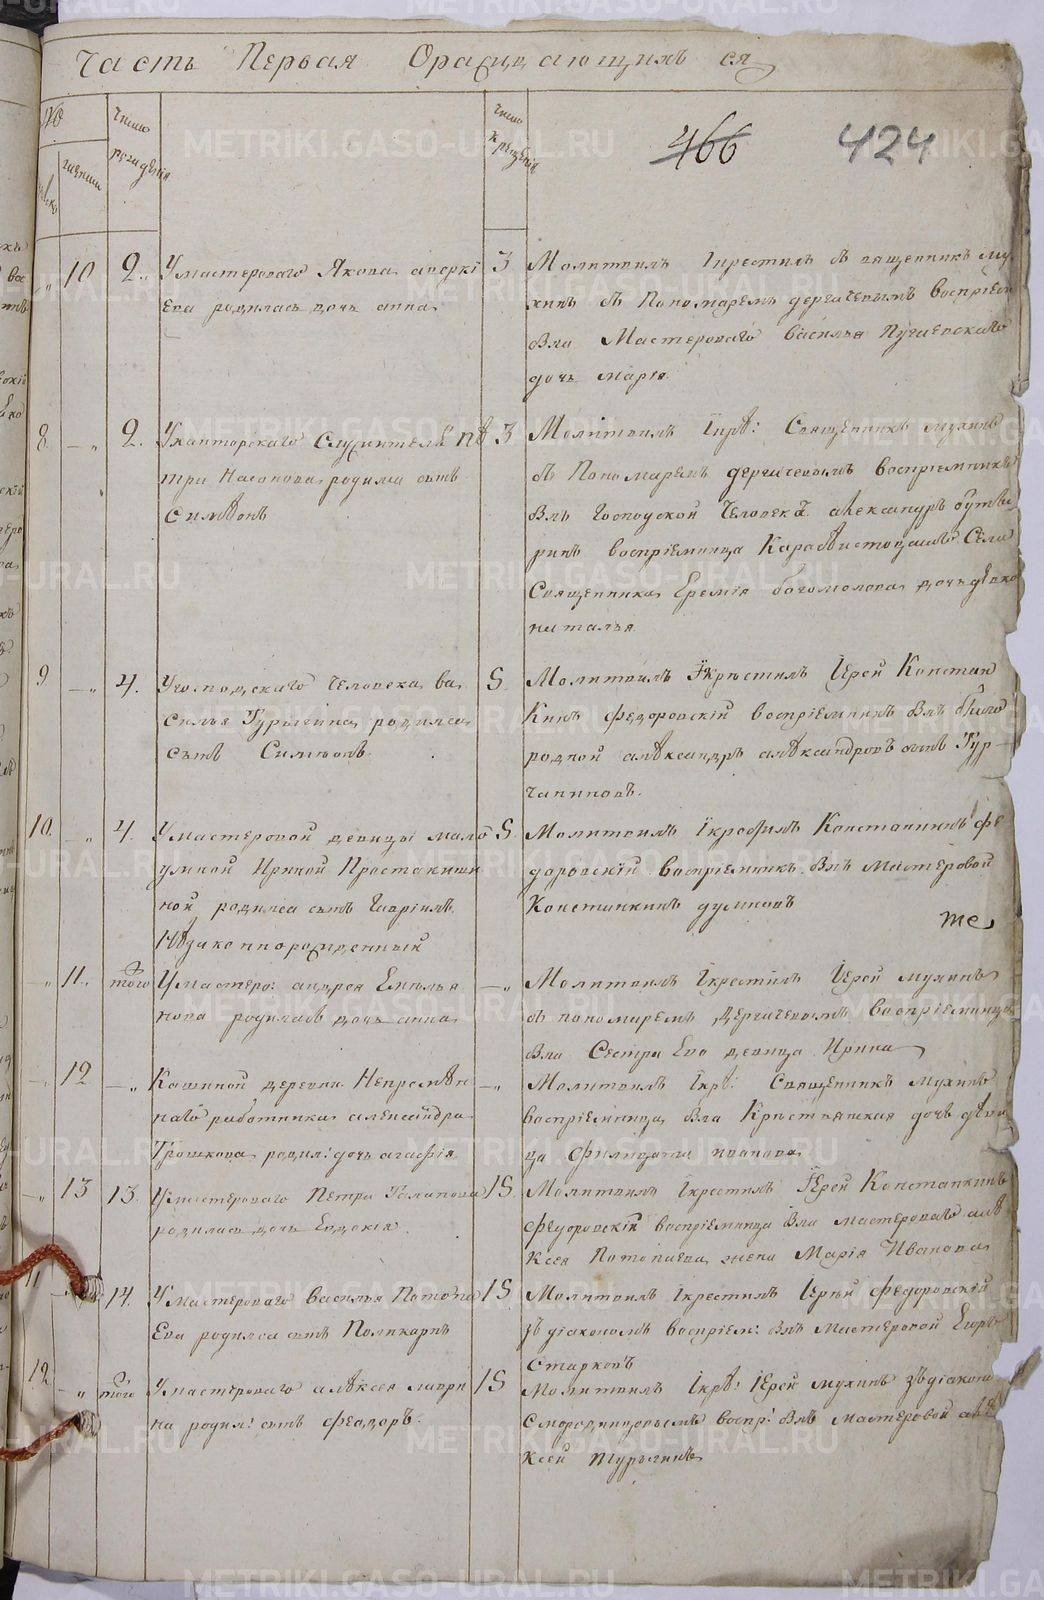 Часть Первая О раждающихъ ся
№
мужеска
женска
число рождения
число крещения
466
424
10 2 У мастероваго Якова аверкі
ева родилась дочь анна
3 Молитвилъ Ікрестилъ священникъ му
хинъ съ Пономаремъ дергачевымъ восприем
вла Мастероваго василья Пугаевскаго
дочь марія
8 2. У канторскаго служителя пе
тра Насонова родился сынъ
Симеонъ
3 Молитвилъ Ікре: Священникъ мухинъ
съ Пономаремъ дергачевымъ воспріемникъ
влъ Господской человекъ александръ буты
ринъ воспріемница Карасьистоцкаго Села
Священника Еремія богомолова дочь девка
наталья
9 4. У господскаго человека ва
силья Турыгина родился
сынъ Симеонъ.
5. Молитвилъ Ікрестилъ Іерей Констан
кинъ федоровскій воспріемникъ влъ благо
родной александръ александровъ сынъ Тур
чаниновъ.
10. 4 У мастеровой девицы мало
умной Ирины Простакиши
ной родился сынъ Гавріилъ
Незаконнорожденный
5 Молитвилъ Ікрестилъ Констанкинъ фе
доровскій воспріемникъ влъ мастеровой
Констанкинъ думновъ
те
11. того У мастеро: андрея Емелья
нова родилась дочь анна
Молитвилъ Ікрестилъ Іерей мухинъ
съ пономаремъ дергачевымъ воспріемница
вла Сестра Ево девица Ирина
12 Кашиной деревни Непремен
наго работника александра
Трошкова родил: дочь агафія
Молитвилъ Ікре: Священникъ мухинъ
воспріемница вла Крестьянская дочь деви
ца филицата иванова
13 13. У мастероваго Петра Романова
родилась дочь Евдокія.
15. Молитвилъ Ікрестилъ Іерей Констанкинъ
федоровскій воспріемница вла мастероваго але
ксея Потопаева жена Марія Иванова
11 14. У мастероваго василья Потопа
ева родился сынъ Поликарпъ
15 Молитвилъ Ікрестилъ Іерей федоровскій
зъ діакономъ воспріем: влъ мастеровой Егоръ
Старковъ
12 того У мастероваго алексея лаври
на родил: сынъ феодоръ.
15 Молитвилъ Ікре: Іерей мухинъ зъ діакон:
Смородинцовымъ воспр: влъ мастеровой але
ксей Турыгинъ
METRIKI.GASO-URAL.RU